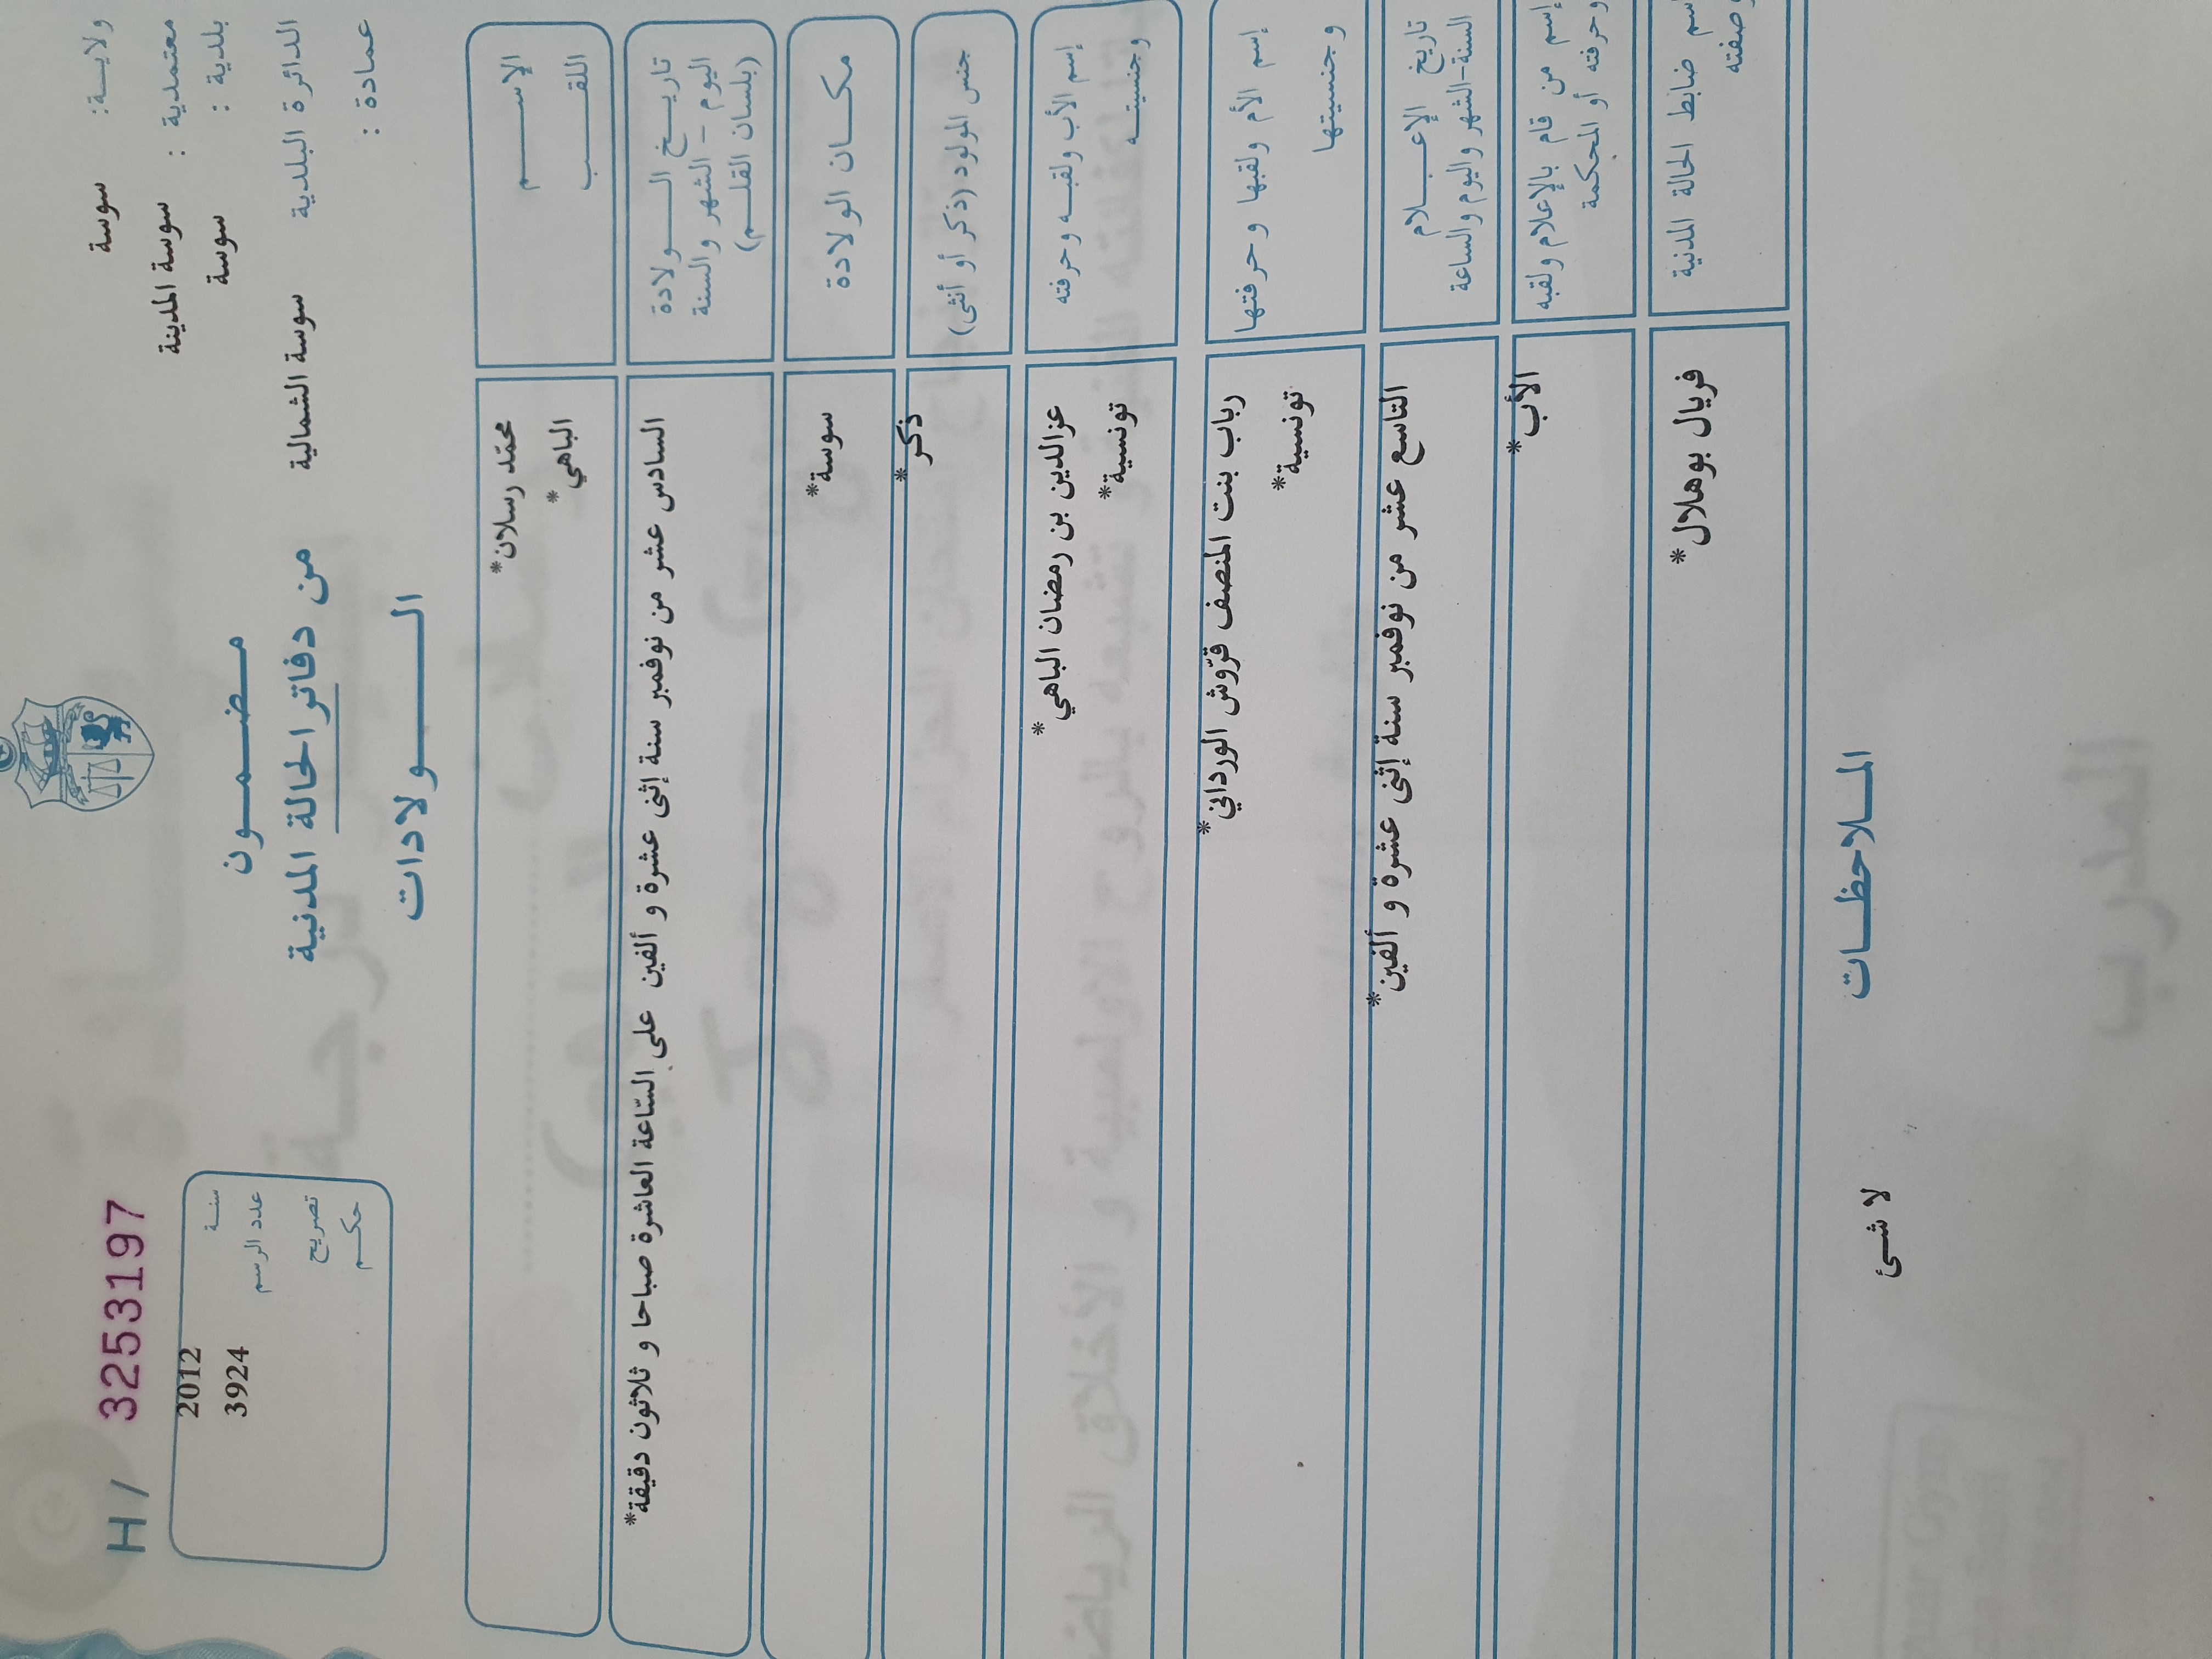 ولايـة: سوسة
معتمدية : سوسة المدينة
بلدية : سوسة
الدائرة البلدية سوسة الشمالية
عمادة :
مـضـمـون
من دفاتر الحالة المدنية
الـولادات
H / 3253197
سنـة 2012
عدد الرسم 3924
تصريح
حكـم
الإسـم محمّد رسلان*
اللقـب الباهي*
تاريـخ الـولادة
اليوم - الشهر والسنة
(بلسان القلـم)
السادس عشر من نوفمبر سنة إثنى عشرة و ألفين على السّاعة العاشرة صباحا و ثلاثون دقيقة*
مكـان الولادة سوسة*
جنس المولود (ذكر أو أنثى) ذكر*
إسم الأب ولقبـه وحرفته عزالدين بن رمضان الباهي*
وجنسيتـه تونسية*
إسم الأم ولقبها وحرفتها رباب بنت المنصف قرّوش الورداني*
وجنسيتها تونسية*
تاريخ الإعـلام
السنة-الشهر واليوم والساعة
التاسع عشر من نوفمبر سنة إثنى عشرة و ألفين*
إسم من قام بالإعلام ولقبه الأب*
وحرفته أو المحكمة
ضابط الحالة المدنية فريال بوهلال*
وصفته
المـلاحظـات
لا شئ